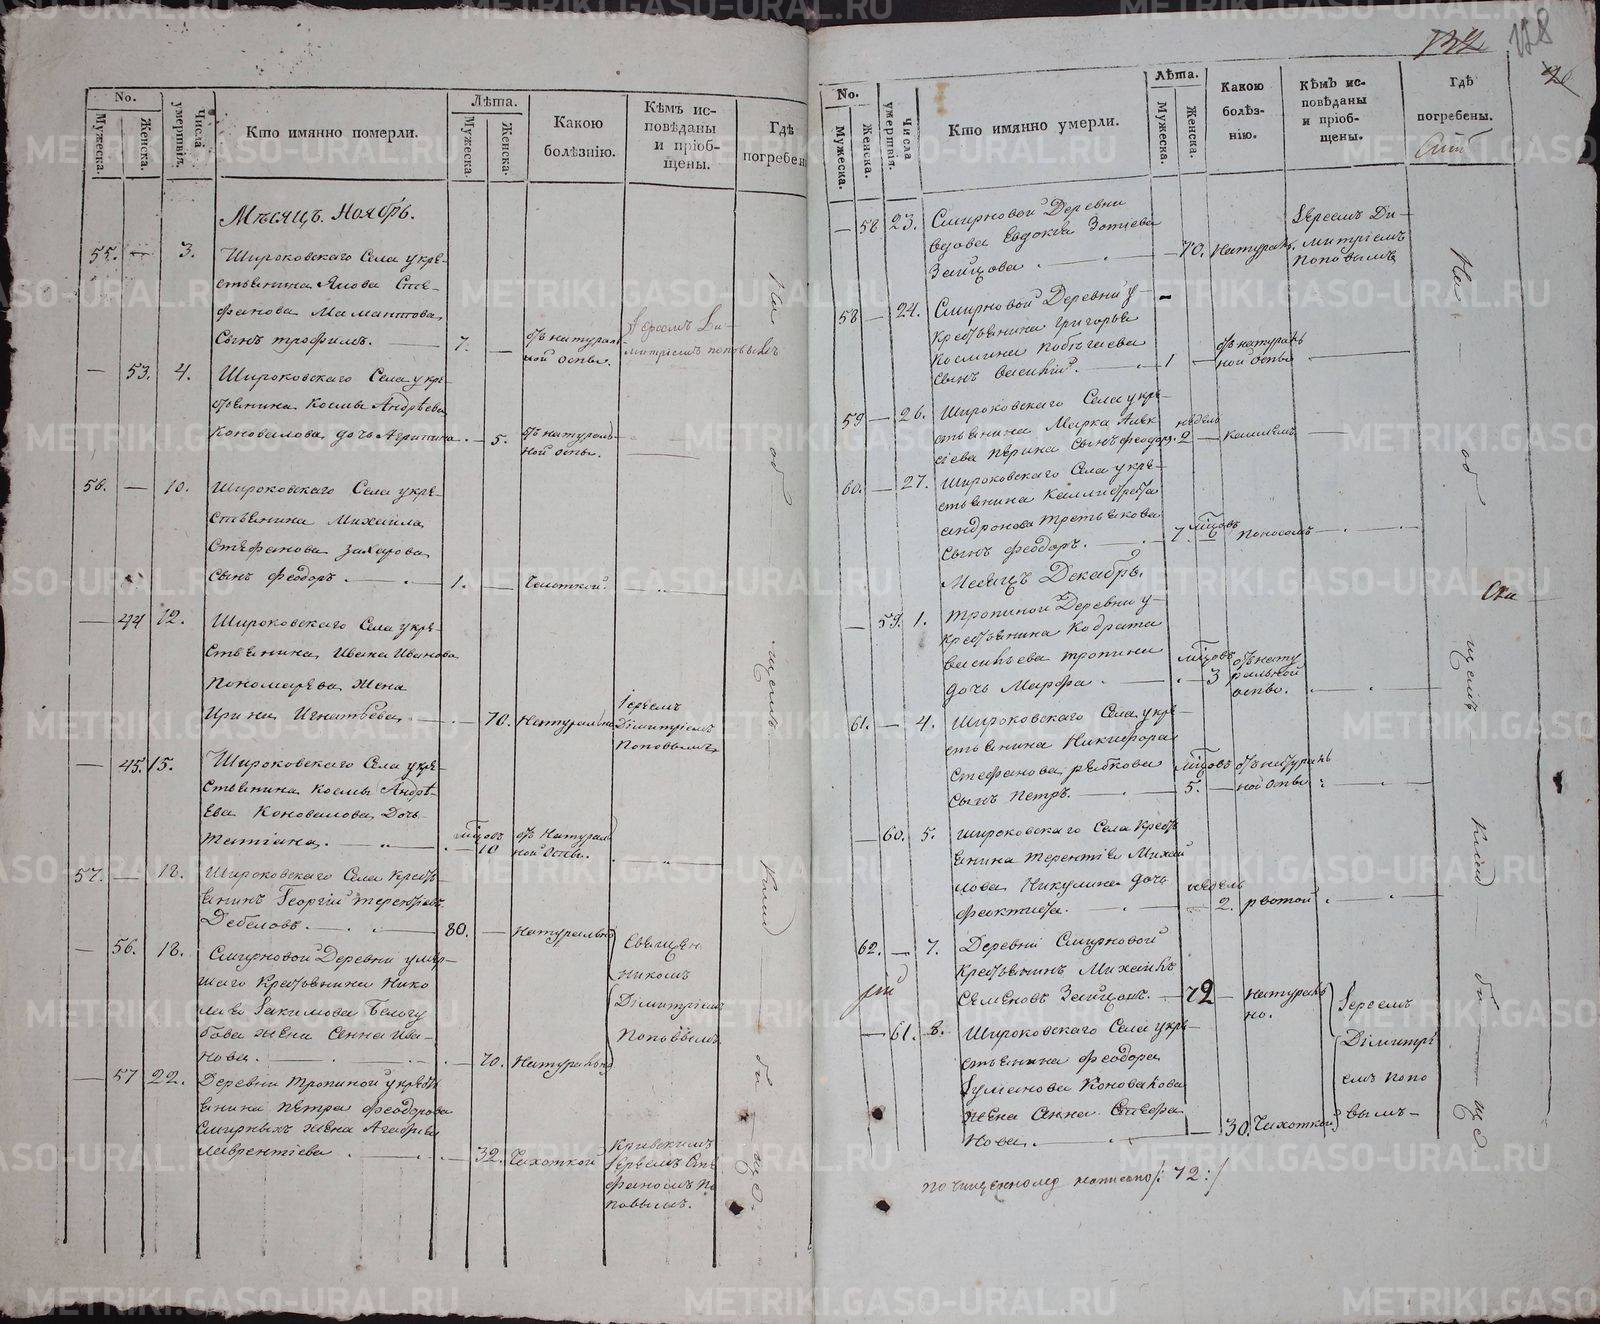 132
128
No.
Мужеска.
Женска.
Числа умертвія.
Кто имянно померли.
Лѣта.
Мужеска
Женска.
Какою болѣзнію.
Кѣмъ исповѣданы и пріобщены.
Гдѣ погребен
Мѣсяцъ Ноябрь.
55. — 3. Широковскаго Села у кре-
стьянина Якова Сте-
фанова Мамантова
Сынъ трофимъ. 7. — отъ натураль
ной оспы.
Іереемъ Ди-
митріемъ поповымъ
— 53. 4. Широковскаго Села у кре-
стьянина Космы Андрѣева
Коновалова дочь Агрипина. — 5. отъ натураль-
ной оспы.
56. — 10. Широковскаго Села у кре-
стьянина Михаила
Стефанова Захарова
Сынъ феодоръ. 1. — Чахоткой.
— 44 12. Широковскаго Села у кре-
стьянина Ивана Иванова
Пономарева Жена
Ирина Игнатьева — 70. Натурально
Іереемъ
Димитріемъ
Поповымъ
— 45. 15. Широковскаго Села у кре-
стьянина Космы Андрѣ-
ева Коновалова Дочь
Татіана. 10 отъ Натураль
ной оспы.
57. — 18. Широковскаго Села Кресть
янинъ Георгій
Дебеловъ. 80. — Натурально
— 56. 18. Смирновой Деревни умер-
шаго Крестьянина Нико
лая Іакимова
бова жена Анна Ива-
нова. — 70. Натурально
Священ
никомъ
Димитріемъ
Поповымъ
— 57 22. Деревни тропиной у кресть
янина петра феодорова
Смирныхъ жена Агафія
лаврентіева — 32. Чахоткой
Іереемъ Сте
фаномъ по
повымъ.
На об щемъ клад би ще.
No.
Мужеска.
Женска.
Числа умертвія.
Кто имянно умерли.
Лѣта.
Мужеска.
Женска.
Какою болѣзнію.
Кѣмъ исповѣданы и пріобщены.
Гдѣ погребены.
— 58 23. Смирновой Деревни
вдова Евдокія Зотіева
Зайцова — 70. Натураль.
Іереемъ Ди-
митріемъ
Поповымъ
58 — 24. Смирновой Деревни у
Крестьянина григорья
Космина
Сынъ Василій. 1 — отъ натураль
ной оспы
59 — 26. Широковскаго Села у кре-
стьянина Марка Алек
сіева Сынъ феодоръ. недель
2 — Кашлемъ
60. — 27. Широковскаго Села у кре-
стьянина Каллистрата
андронова третьякова
Сынъ феодоръ. 7. поносомъ
Месяцъ Декабрь.
— 59. 1. тропиной Деревни у
крестьянина Кодрата
Васильева тропина
дочь Марфа 3 отъ нату
ральной
оспы.
61. — 4. Широковскаго Села у кре-
стьянина Никифора
Стефанова рябкова
Сынъ Петръ. 5. — отъ натураль
ной оспы
— 60. 5. Широковскаго Села Кресть
янина терентія Михай
лова Никулина дочь
феоктиста. недель
2. рвотой
62. — 7. Деревни Смирновой
Крестьянинъ Михаилъ
Семеновъ Зайцовъ. 72 — Натураль
но.
— 61. 8. Широковскаго Села у кре-
стьянина феодора
Коновалова
жена Анна Стефа
нова. — 30. Чахоткой
Іереемъ
Димитрі
емъ попо
вымъ
На об щемъ клад би ще.
написано /: 72 :/
METRIKI.GASO-URAL.RU